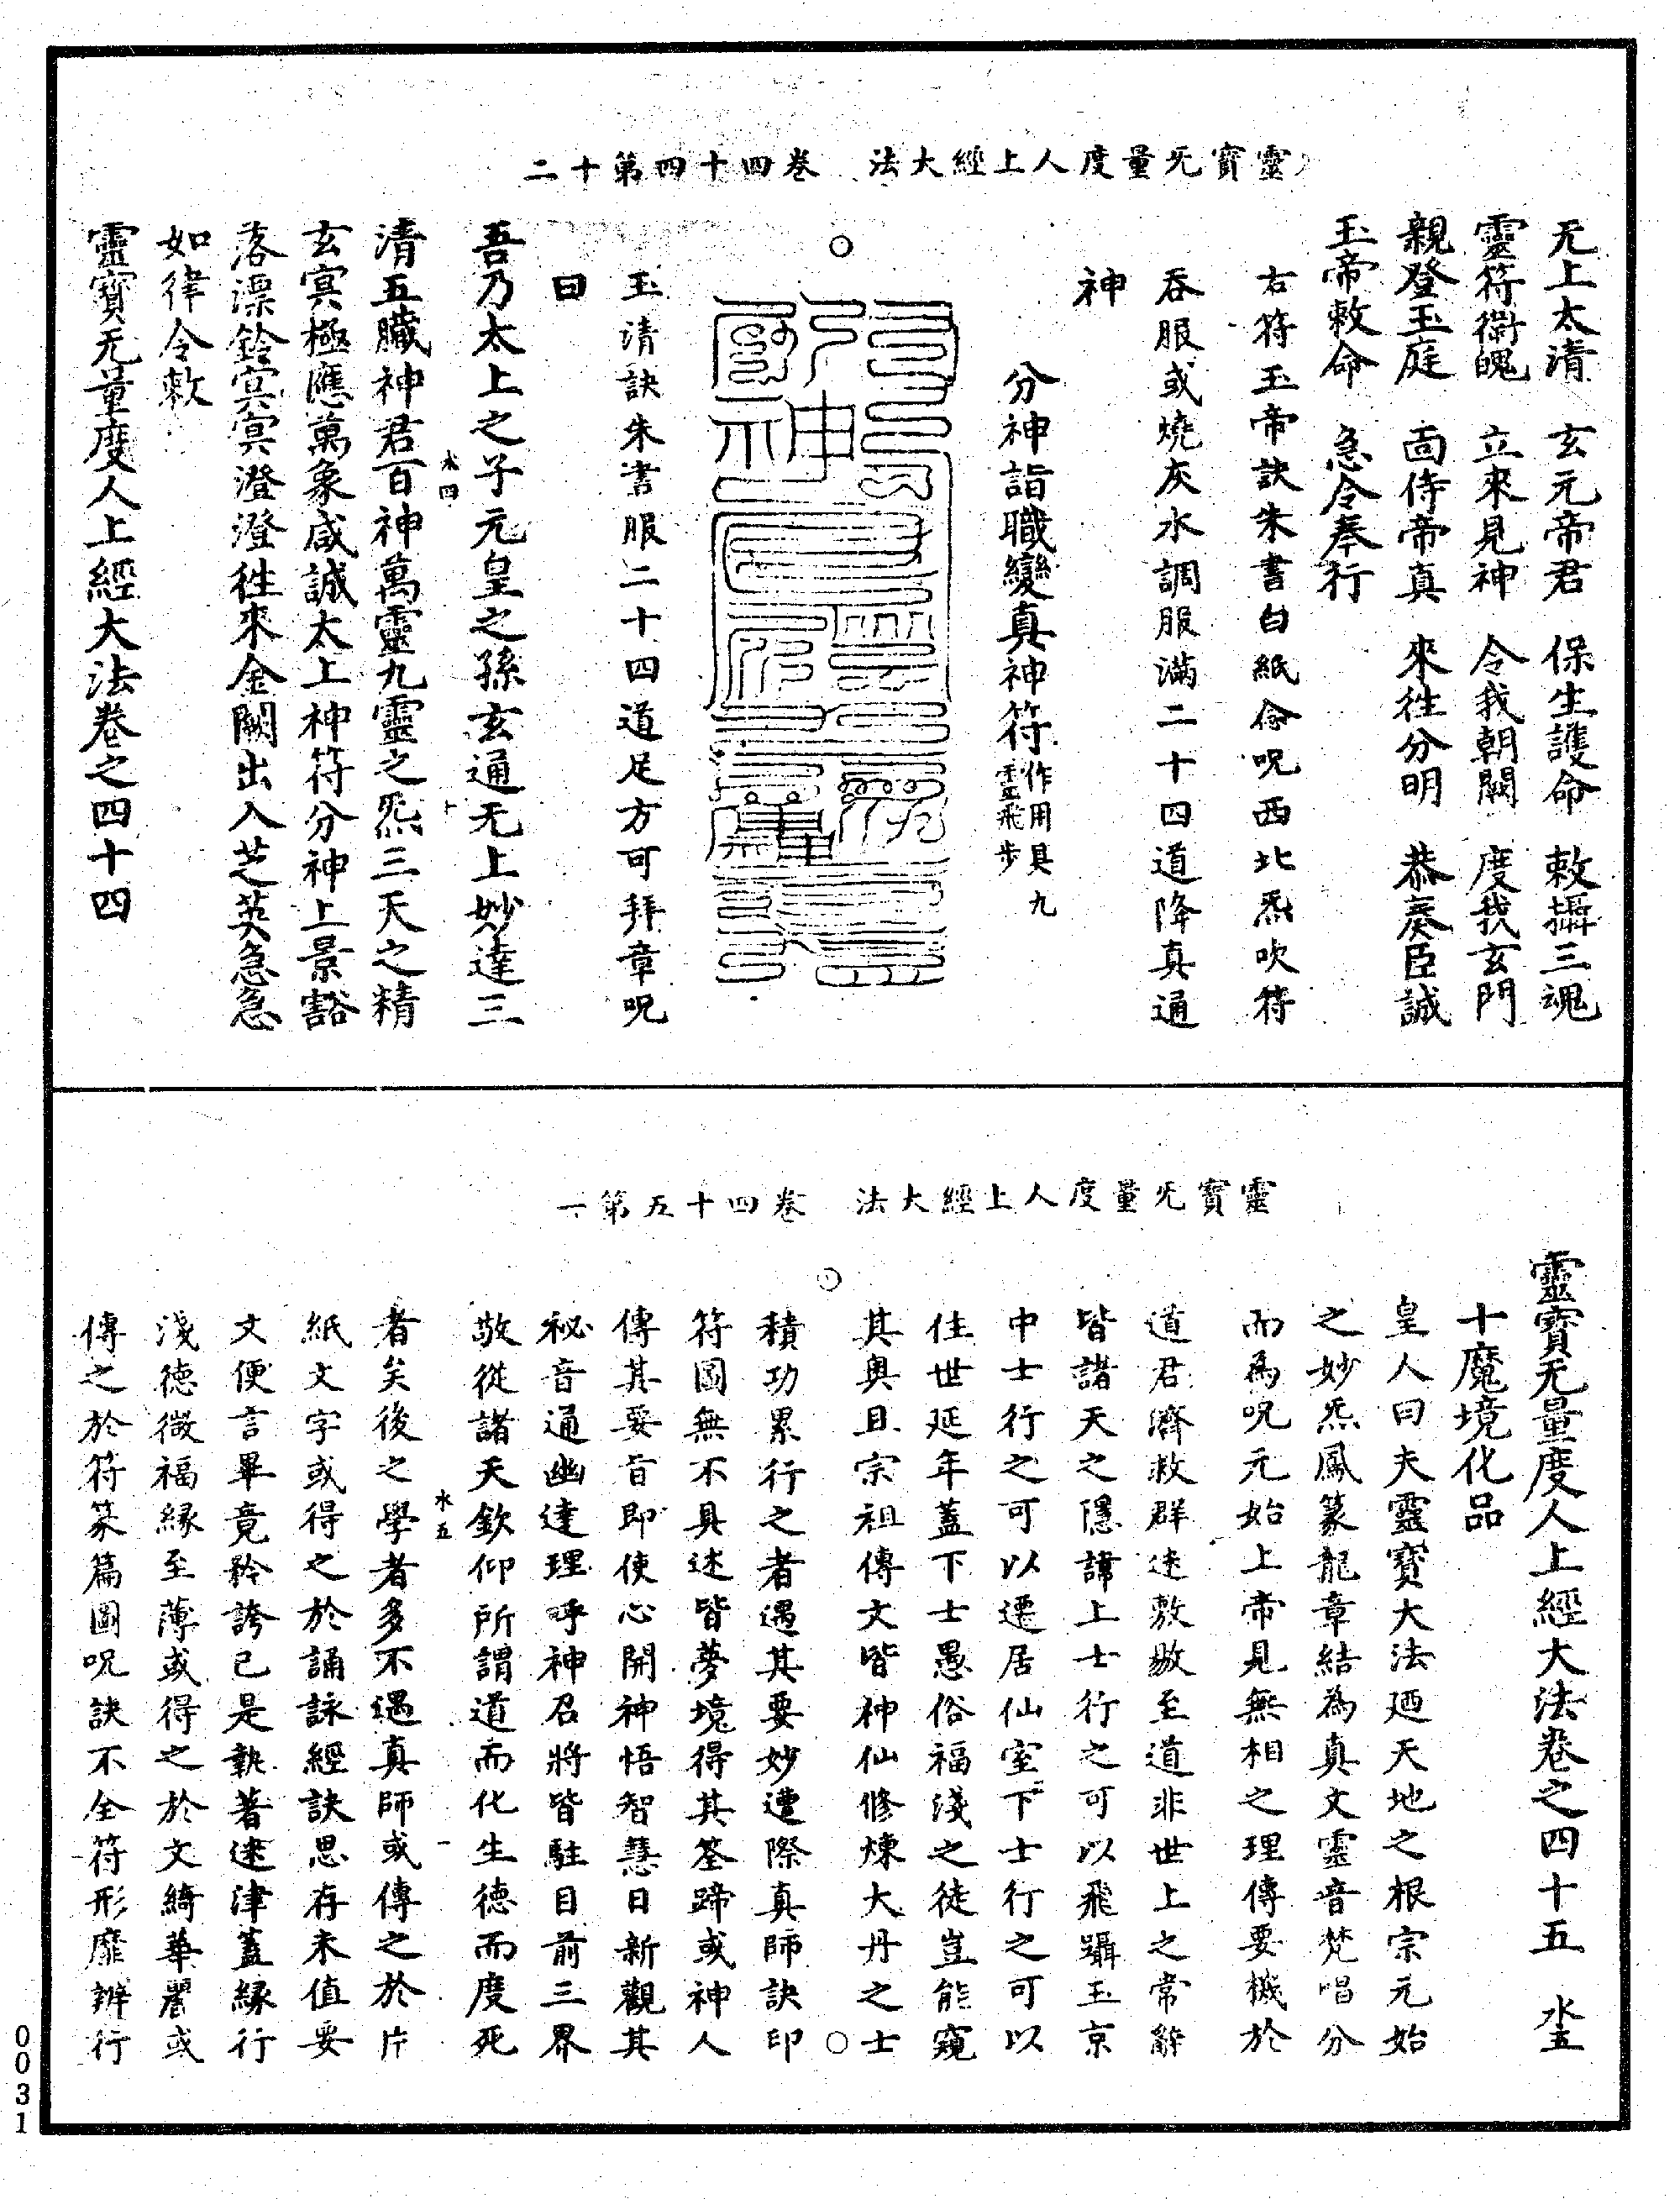 靈寶无量度人上經大法　卷四十四第十二
无上太清　玄元帝君　保生護命　敕攝三魂
靈符衛魄　立來見神　令我朝闕　度我玄門
親登玉庭　面侍帝真　來往分明　恭奏臣誠
玉帝敕命　急令奉行
右符玉帝訣朱書白紙念呪西北炁吹符
吞服或燒灰水調服滿二十四道降真通
神
分神詣職變真神符作用具九
靈飛步
玉清訣朱書服二十四道足方可拜章呪
曰
吾乃太上之子元皇之孫玄通无上妙達三
水四
十
清五臟神君百神萬靈九靈之炁三天之精
玄冥極應萬象咸誠太上神符分神上景豁
落漂鈴冥冥澄澄往來金闕出入芝英急急
如律令敕
靈寶无量度人上經大法卷之四十四
靈寶无量度人上經大法　卷四十五第一
靈寶无量度人上經大法卷之四十五　水五
十魔境化品
皇人曰夫靈寶大法廼天地之根宗元始
之妙炁鳳篆龍章結為真文靈音梵唱分
而為呪元始上帝見無相之理傳要機於
道君濟救群迷敷敭至道非世上之常辭
皆諸天之隱諱上士行之可以飛躡玉京
中士行之可以遷居仙室下士行之可以
住世延年蓋下士愚俗福淺之徒豈能窺
其奥且宗祖傳文皆神仙修煉大丹之士
積功累行之者遇其要妙遭際真師訣印
符圖無不具述皆夢境得其筌蹄或神人
傳其要旨即使心開神悟智慧日新觀其
祕音通幽達理呼神召將皆駐目前三界
敬從諸天欽仰所謂道而化生德而度死
水五
一
者矣後之學者多不遇真師或傳之於片
紙文字或得之於誦詠經訣思存未值要
文便言畢竟矜誇已是執著迷津蓋緣行
淺德微福緣至薄或得之於文綺華麗或
傳之於符篆篇圖呪訣不全符形靡辨行
0031